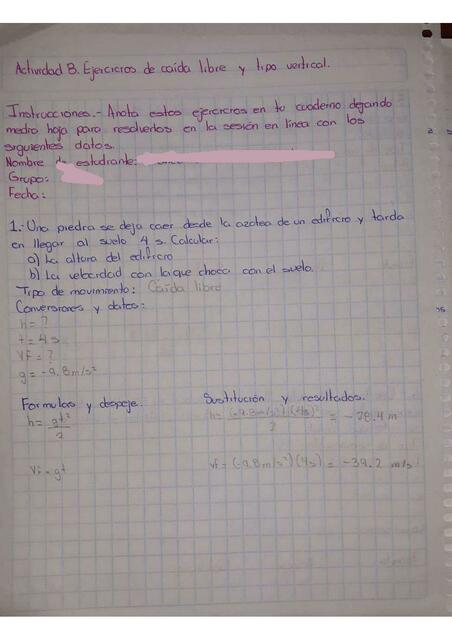 Actividad 8. Ejercicios de caída libre y tipo vertical.
Instrucciones.- Anota estos ejercicios en tu cuaderno dejando
media hoja para resolverlos en la sesión en línea con los
siguientes datos.
Nombre de estudiante:
Grupo:
Fecha:
1.- Una piedra se deja caer desde la azotea de un edificio y tarda
en llegar al suelo 4 s. Calcular:
a) La altura del edificio
b) La velocidad con la que choca con el suelo.
Tipo de movimiento: Caída libre
Conversiones y datos:
h = ?
t = 4 s
VF = ?
g = -9.8 m/s²
Formulas y despeje.
Sustitución y resultados.
h = gt²/2
h = (-9.8m/s²)(4s)²/2 = -78.4 m
Vf = gt
vf = (-9.8m/s²)(4s) = -39.2 m/s